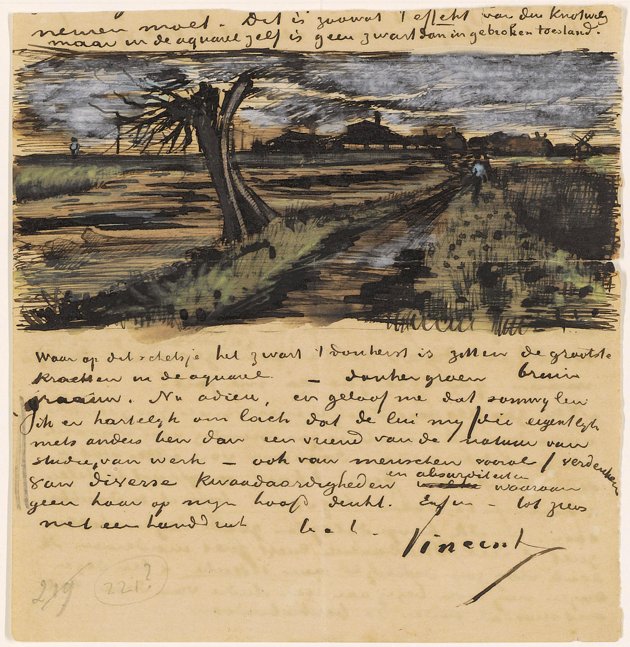 nemen moet. Dit is zoowat 't effekt van den Knotwilg
maar in de aquarel zelf is geen zwart dan in gebroken toestand.
Waar op dit schetsje het zwart 't donkerst is zitten de grootste
krachten in de aquarel – donkergroen bruin
graauw. Nu adieu, en geloof me dat somwijlen
ik er hartelijk om lach dat de lui mij /die eigentlijk
niets anders ben dan een vriend van de natuur van
studie, van werk – ook van menschen vooral/ verdenken
van diverse kwaadaardigheden en absurditeiten waaraan
geen haar op mijn hoofd denkt. Enfin – tot ziens
met een handdruk
Vincent
219 221?